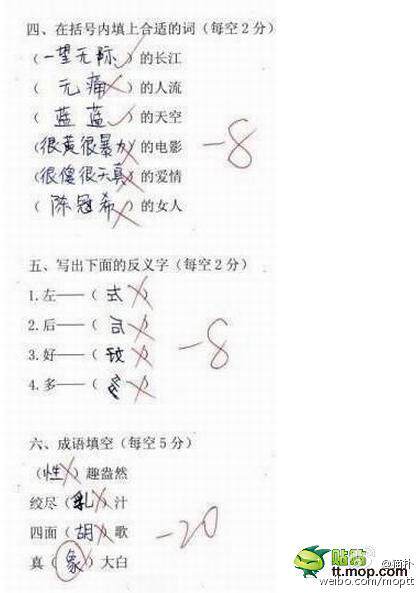 四、在括号内填上合适的词（每空2分）
（一望无际）的长江
（无痛）的人流
（蓝蓝）的天空
（很黄很暴力）的电影
（很傻很天真）的爱情
（陈冠希）的女人
-8
五、写出下面的反义字（每空2分）
1.左——（ ）
2.后——（ ）
3.好——（ ）
4.多——（ ）
-8
六、成语填空（每空5分）
（性）趣盎然
绞尽（乳）汁
四面（胡）歌
真（象）大白
-20
tt.mop.com
weibo.com/moptt